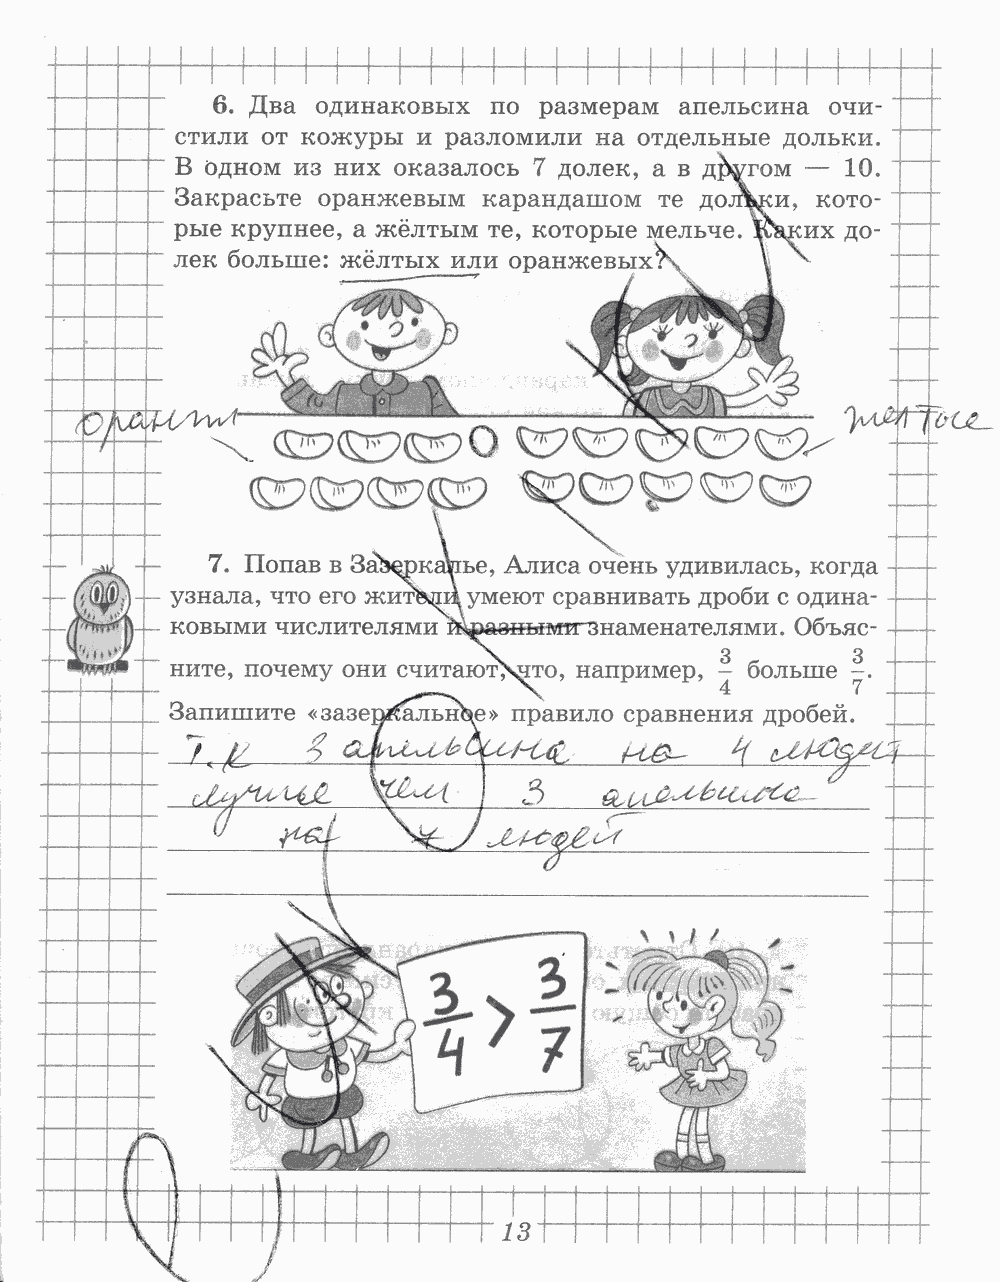 6. Два одинаковых по размерам апельсина очи-
стили от кожуры и разломили на отдельные дольки.
В одном из них оказалось 7 долек, а в другом — 10.
Закрасьте оранжевым карандашом те дольки, кото-
рые крупнее, а жёлтым те, которые мельче. Каких до-
лек больше: жёлтых или оранжевых?
желтые
7. Попав в Зазеркалье, Алиса очень удивилась, когда
узнала, что его жители умеют сравнивать дроби с одина-
ковыми числителями и разными знаменателями. Объяс-
ните, почему они считают, что, например, 3/4 больше 3/7.
Запишите «зазеркальное» правило сравнения дробей.
Т.к 3 апельсина на 4 людей
лучше чем 3 апельсина
на 7 людей
3/4 > 3/7
13